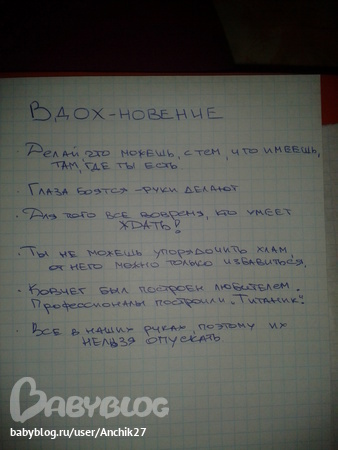 ВДОХ-НОВЕНИЕ
· Делай что можешь, с тем, что имеешь,
там, где ты есть
· Глаза боятся - руки делают
· Для того все вовремя, кто умеет
ждать!
· Ты не можешь упорядочить хлам
от него можно только избавиться,
· Ковчег был построен любителем.
Профессионалы построили „Титаник".
· Все в наших руках, поэтому их
нельзя опускать
BABYBLOG
babyblog.ru/user/Anchik27